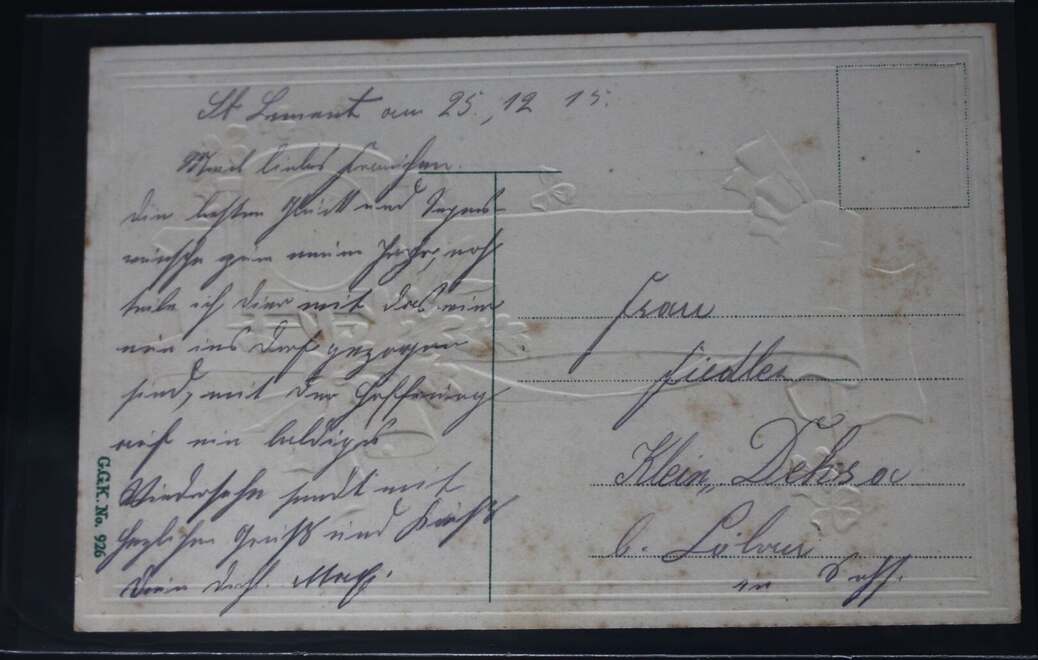 St Lement am 25.,12 15.
Mein liebes Frauchen.
Die besten Glück und Segens-
wünsche zum neuen Jahre,
teile ich Dier mit das wier
nun ins Dorf gezogen
sind, mit der Hoffnung
auf ein baldiges
Wiedersehn sendt mit
herzlichen Gruß und Kuß
Dein dchl.
G.G.K. No. 926
Frau
Fiedler
Klein„ Dehsa
b. Löbau
in Sachs.